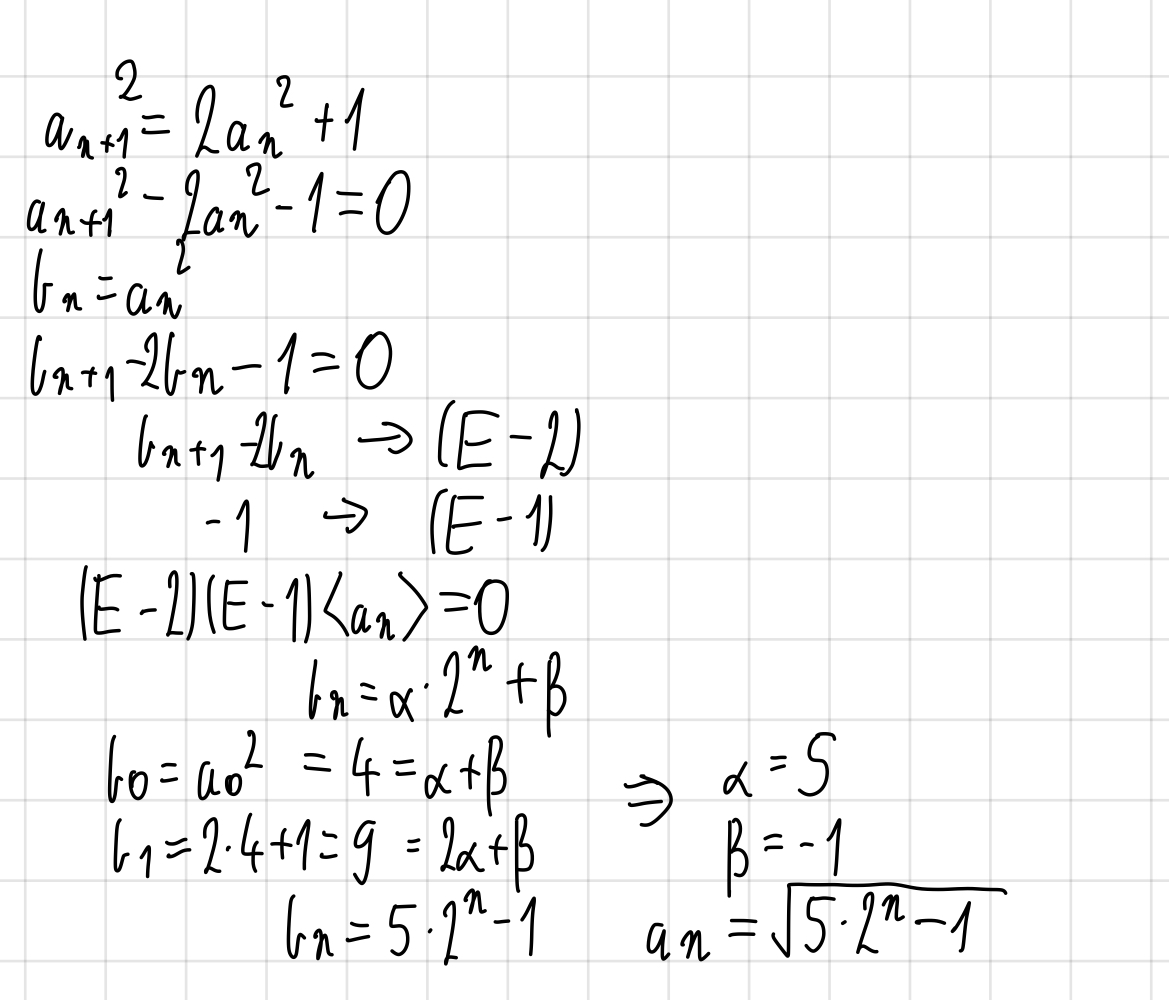 aₙ₊₁² = 2aₙ² + 1
aₙ₊₁² - 2aₙ² - 1 = 0
bₙ = aₙ²
bₙ₊₁ - 2bₙ - 1 = 0
bₙ₊₁ - 2bₙ → (E - 2)
- 1 → (E - 1)
(E - 2)(E - 1)⟨aₙ⟩ = 0
bₙ = α · 2ⁿ + β
b₀ = a₀² = 4 = α + β ⇒ α = 5
b₁ = 2·4 + 1 = 9 = 2α + β β = -1
bₙ = 5 · 2ⁿ - 1 aₙ = √(5 · 2ⁿ - 1)